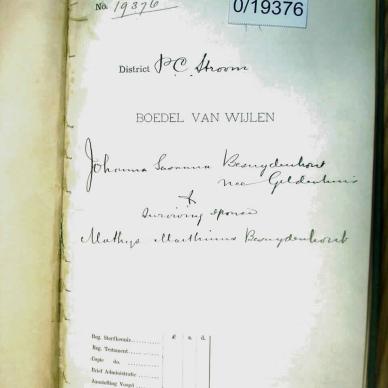 No. 19376
0/19376
District P.C. Stroom
BOEDEL VAN WIJLEN
Johanna Susanna Bezuydenhout
nee Geldenhuis
&
surviving spouse
Mathys Marthinus Bezuydenhout
£ s. d.
Reg. Sterfkennis
Reg. Testament
Copie do.
Brief Administratie
Aanstelling Voogd